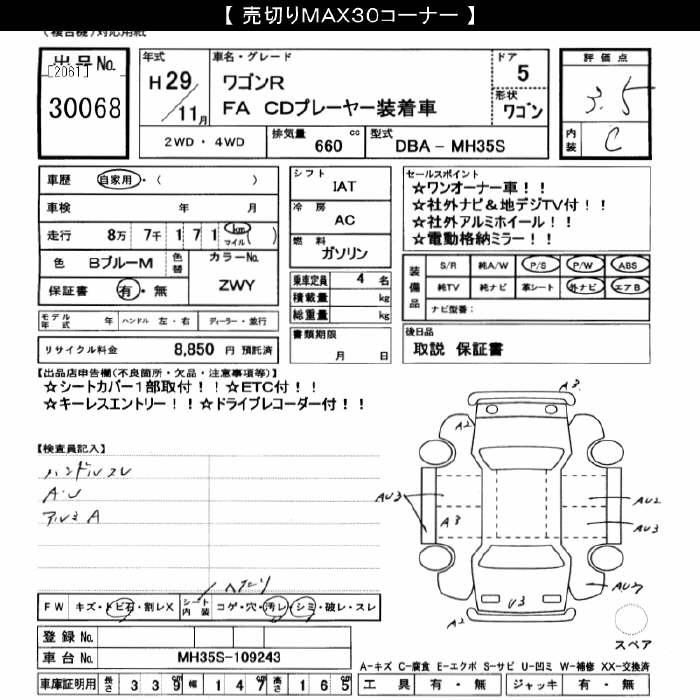 【 売切りMAX30コーナー 】
(複合機)対応用紙
出品No.
[2061]
30068
年式
H 29
/ 11 月
車名・グレード
ワゴンR
FA CDプレーヤー装着車
ドア
5
形状
ワゴン
評価点
3.5
内装
C
2WD・4WD
排気量 660 cc
型式 DBA - MH35S
車歴 自家用・( )
車検 年 月
走行 8万 7千 1 7 1 km マイル ( )
色 BブルーM 色替 カラーNo.
ZWY
保証書 有・無
モデル年式 年 ハンドル 左・右 ディーラー・並行
リサイクル料金 8,850 円 預託済
シフト IAT
冷房 AC
燃料 ガソリン
乗車定員 4 名
積載量 kg
総重量 kg
書類期限
月 日
セールスポイント
☆ワンオーナー車！！
☆社外ナビ&地デジTV付！！
☆社外アルミホイール！！
☆電動格納ミラー！！
装備品
S/R 純A/W P/S P/W ABS
純TV 純ナビ 革シート 外ナビ エアB
ナビ型番：
後日品
取説 保証書
【出品店申告欄(不良箇所・欠品・注意事項等)】
☆シートカバー1部取付！！☆ETC付！！
☆キーレスエントリー！！☆ドライブレコーダー付！！
【検査員記入】
ハンドルスレ
A・U
アルミA
A3
A2
AU3
A3
AU2
AU3
AU2
U3
A2
スペア
ヘたり
FW キズ・トビ石・割レX シート内装 コゲ・穴・汚レ・シミ・破レ・スレ
登録No.
車台No. MH35S-109243
車庫証明用 長さ 3 3 9 cm 幅 1 4 7 cm 高さ 1 6 5 cm
A-キズ C-腐食 E-エクボ S-サビ U-凹ミ W-補修 XX-交換済
工具 有・無 ジャッキ 有・無